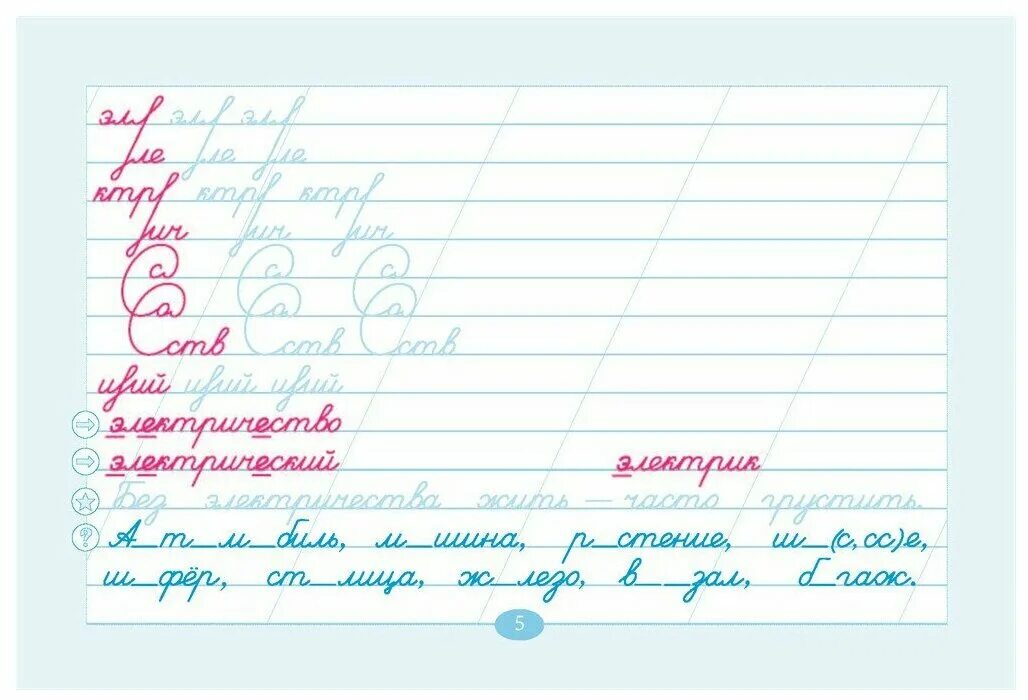 эл эл эл
ле ле ле
ктр ктр ктр
ич ич ич
Са Са Са
Со Со Со
ств ств ств
ций ций ций
электричество
электрический электрик
Без электричества жить — часто грустить.
А_т_м_биль, м_шина, р_стение, ш_(с, сс)е,
ш_фёр, ст_лица, ж_лезо, в_ _зал, б_гаж.
5